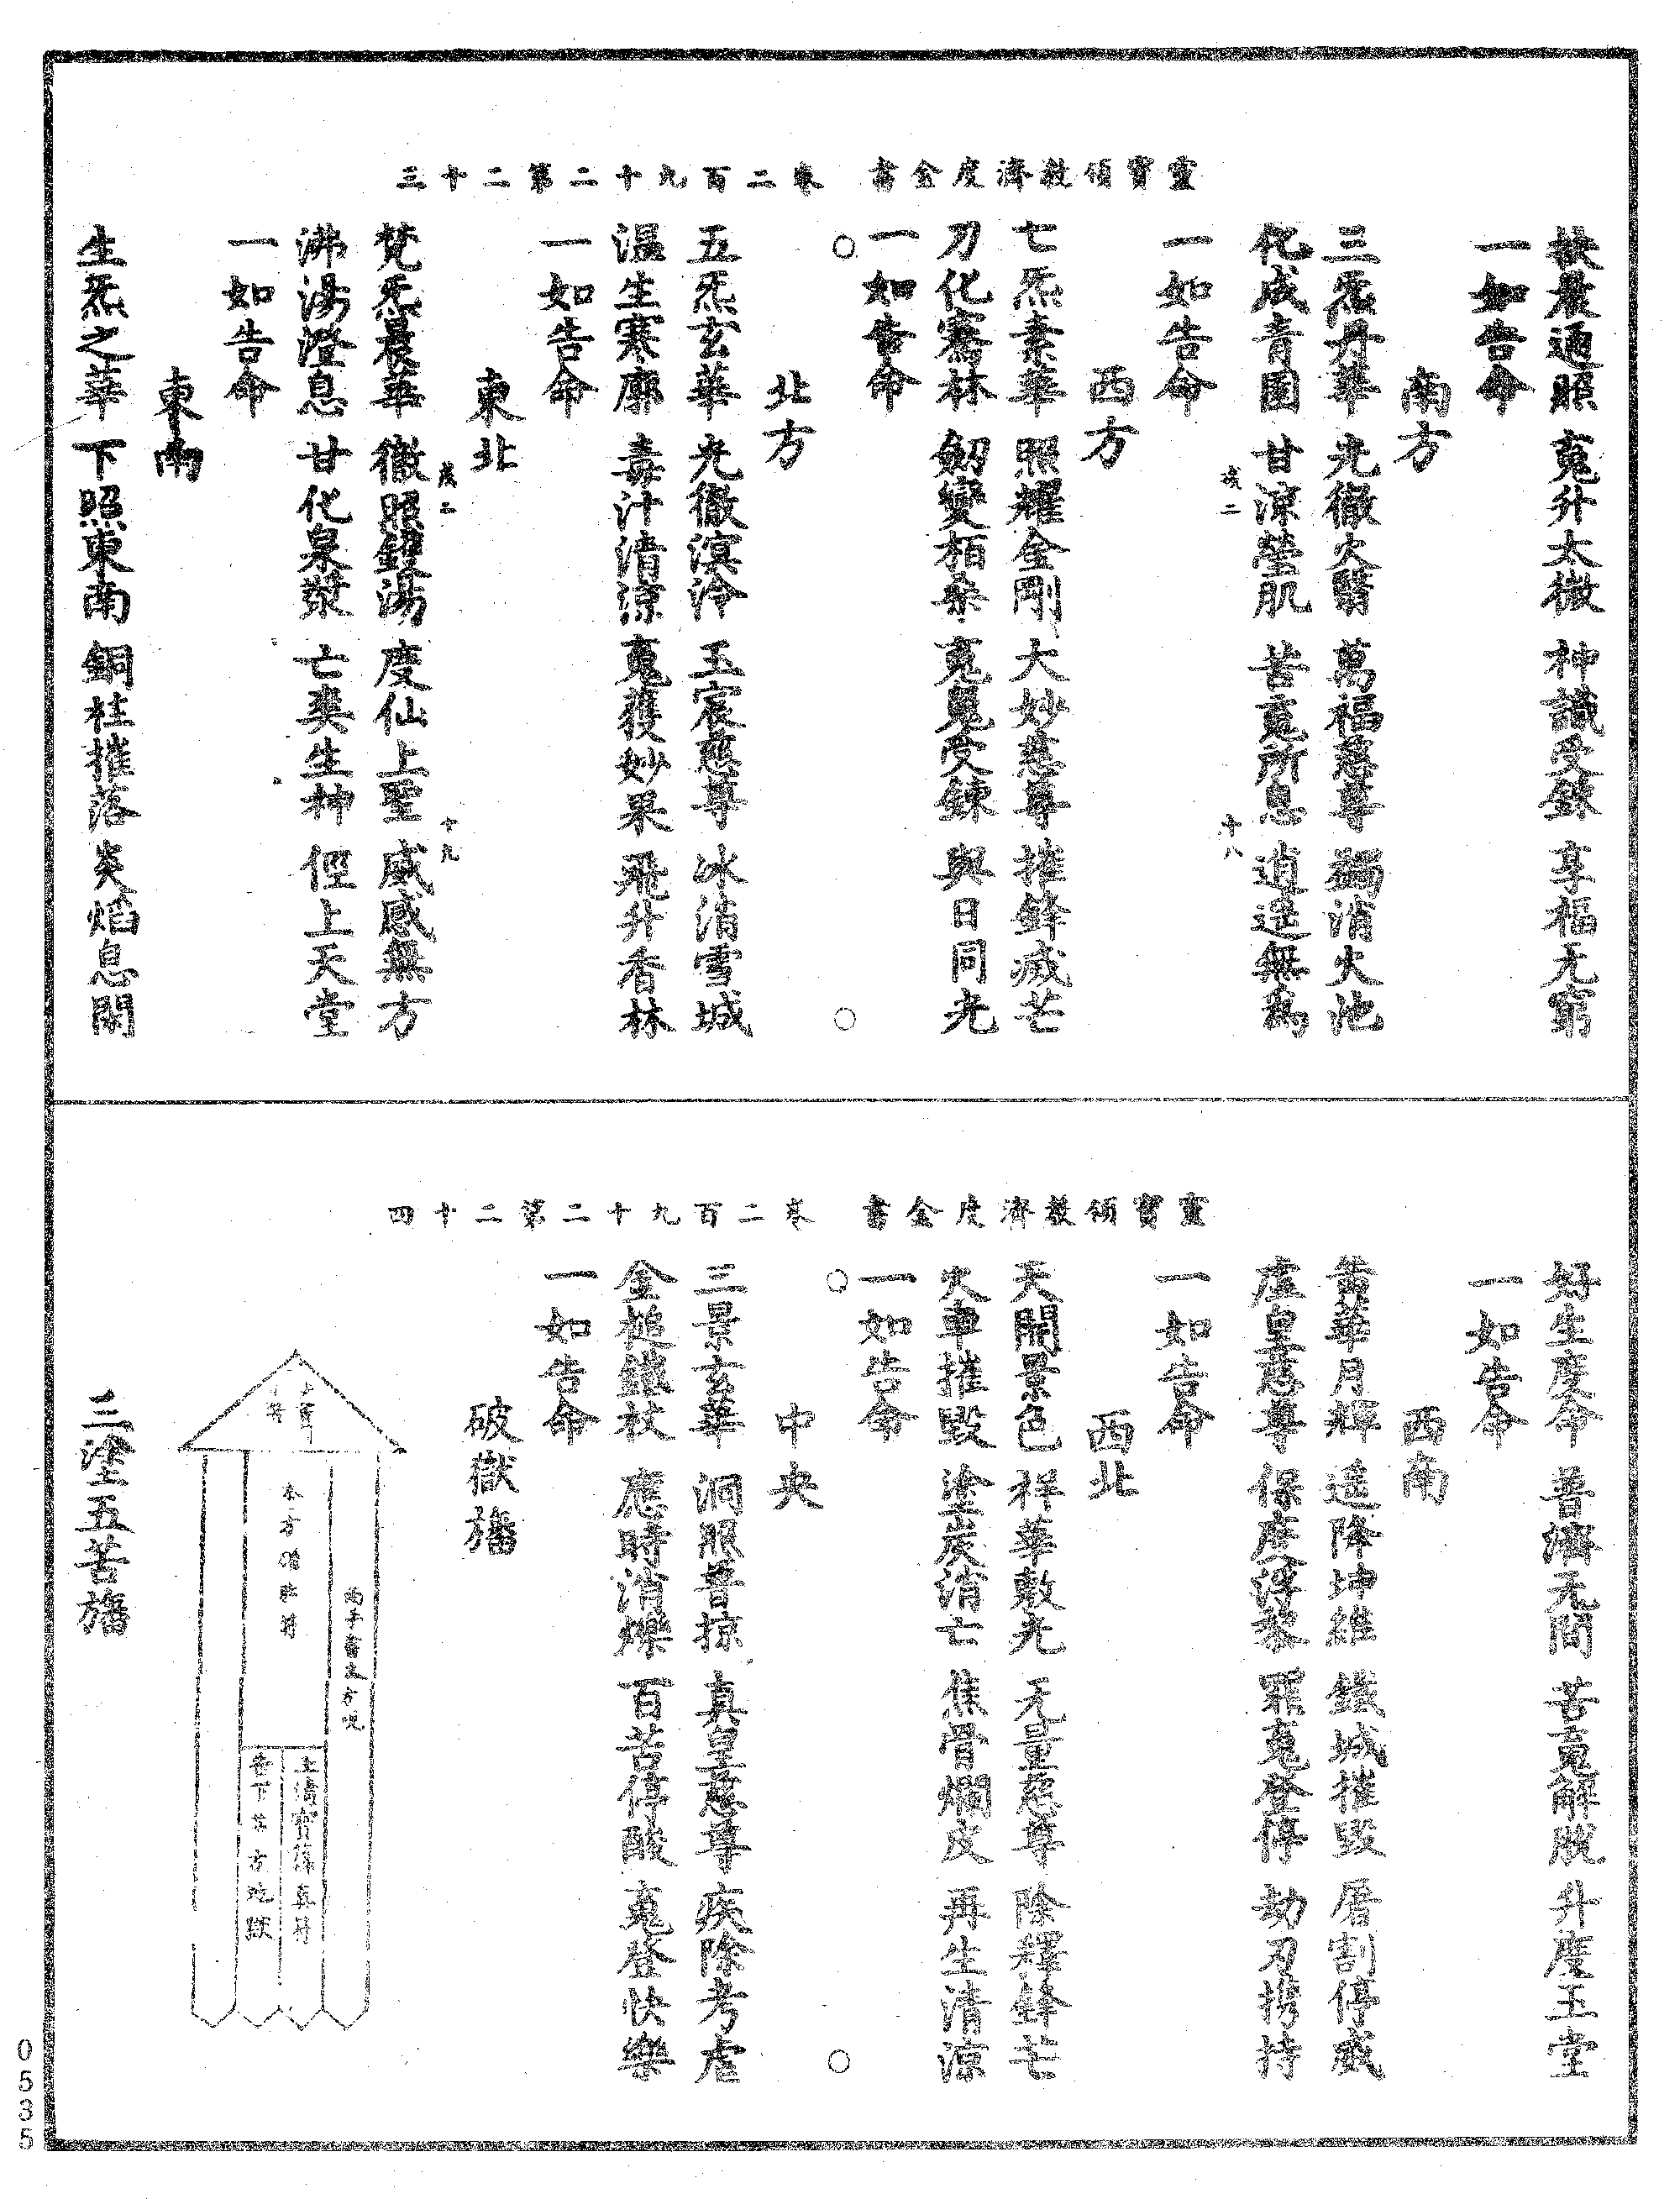 靈寶領教濟度金書　卷二百九十二第二十三
扶晨通照　䰟升太微　神識受鍊　享福无窮
一如告命
南方
三炁丹華　光徹火翳　萬福慈尊　獨消火池
化成青園　甘涼瑩肌　苦䰟所息　逍遥無為
一如告命
西方
七炁素華　照耀金剛　大妙慈尊　摧鋒滅芒
刀化騫林　劒變栢桑　䰟鬼受鍊　與日同光
一如告命
北方
五炁玄華　光徹溟泠　玉宸慈尊　冰消雪城
温生寒廓　毒汁清涼　䰟獲妙果　飛升香林
一如告命
東北
梵炁晨華　徹照鑊湯　度仙上聖　威感無方
沸湯澄息　甘化泉漿　亡爽生神　徑上天堂
一如告命
東南
生炁之華　下照東南　銅柱摧落　炎焰息閑
十八
十九
靈寶領教濟度金書　卷二百九十二第二十四
好生度命　普濟无間　苦䰟解脫　升度玉堂
一如告命
西南
黃華月輝　遥降坤維　鐵城摧毀　屠割停威
虛皇慈尊　保度浮黎　罪䰟登停　劫刃携持
一如告命
西北
天開景色　祥華敷光　无量慈尊　除釋鋒芒
火車摧毀　塗炭消亡　焦骨爛皮　再生清涼
一如告命
中央
三景玄華　洞照普掠　真皇慈尊　疾除考虐
金槌鐵杖　應時消爍　百苦停酸　䰟登快樂
一如告命
破獄旛
本方
符
兩手書本方呪
上清寶籙真符
告下某方地獄
三塗五苦旛
0535